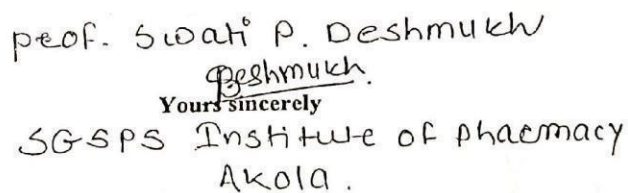 Prof. Swati P. Deshmukh
Deshmukh.
Yours sincerely
SGSPS Institute of Pharmacy
Akola.